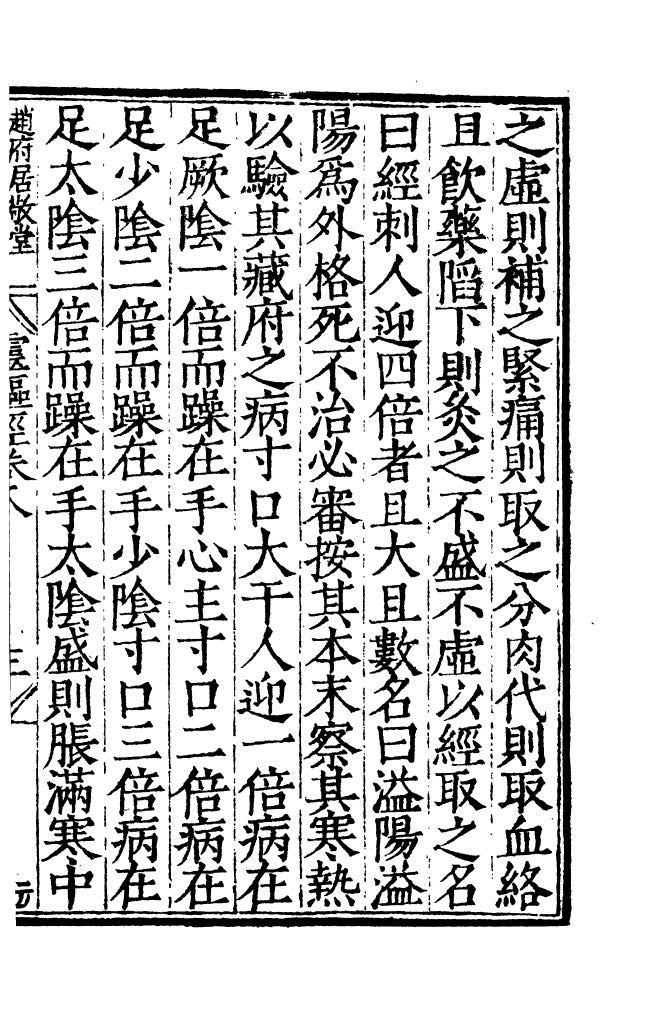 之虛則補之緊痛則取之分肉代則取血絡
且飲藥䧟下則灸之不盛不虛以經取之名
曰經刺人迎四倍者且大且數名曰溢陽溢
陽爲外格死不治必審按其本末察其寒熱
以驗其藏府之病寸口大于人迎一倍病在
足厥陰一倍而躁在手心主寸口二倍病在
足少陰二倍而躁在手少陰寸口三倍病在
足太陰三倍而躁在手太陰盛則脹滿寒中
趙府居敬堂 靈樞經卷八 三